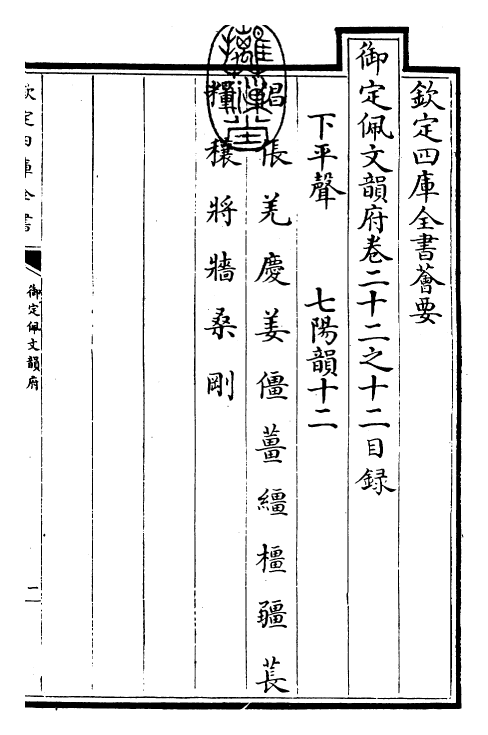 欽定四庫全書薈要
御定佩文韻府卷二十二之十二目録
下平聲　七陽韻十二
倀羌慶姜僵薑繮橿疆萇
糧穰將牆桑剛
欽定四庫全書
御定佩文韻府
一